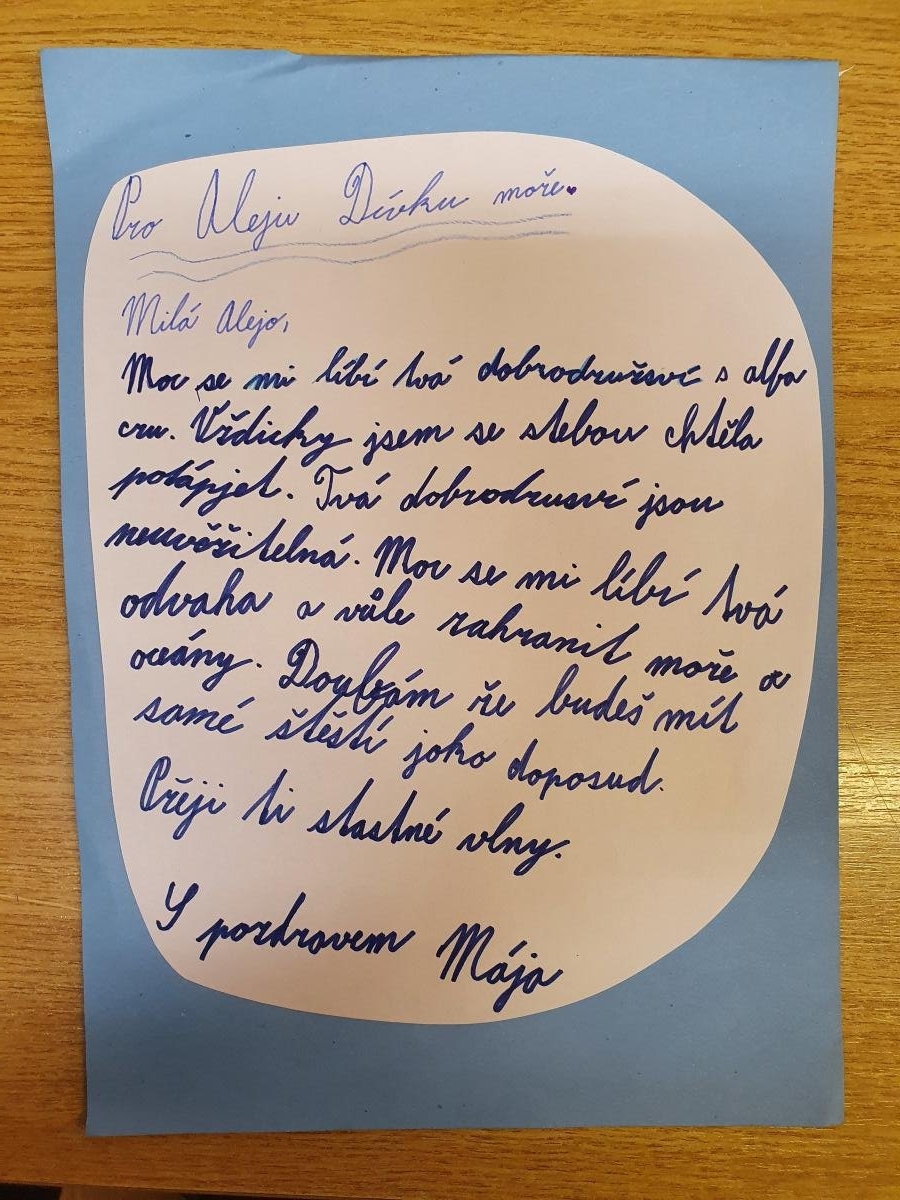 Pro Aleju Dívku moře.
Milá Alejo,
Moc se mi líbí tvá dobrodružsví s alfa
cru. Vždicky jsem se stebou chtěla
potápjet. Tvá dobrodrusví jsou
neuvěřitelná. Moc se mi líbí tvá
odvaha a vůle zahranit moře a
oceány. Doufám že budeš mít
samé štěstí jako doposud.
Přeji ti stastné vlny.
S pozdravem Mája